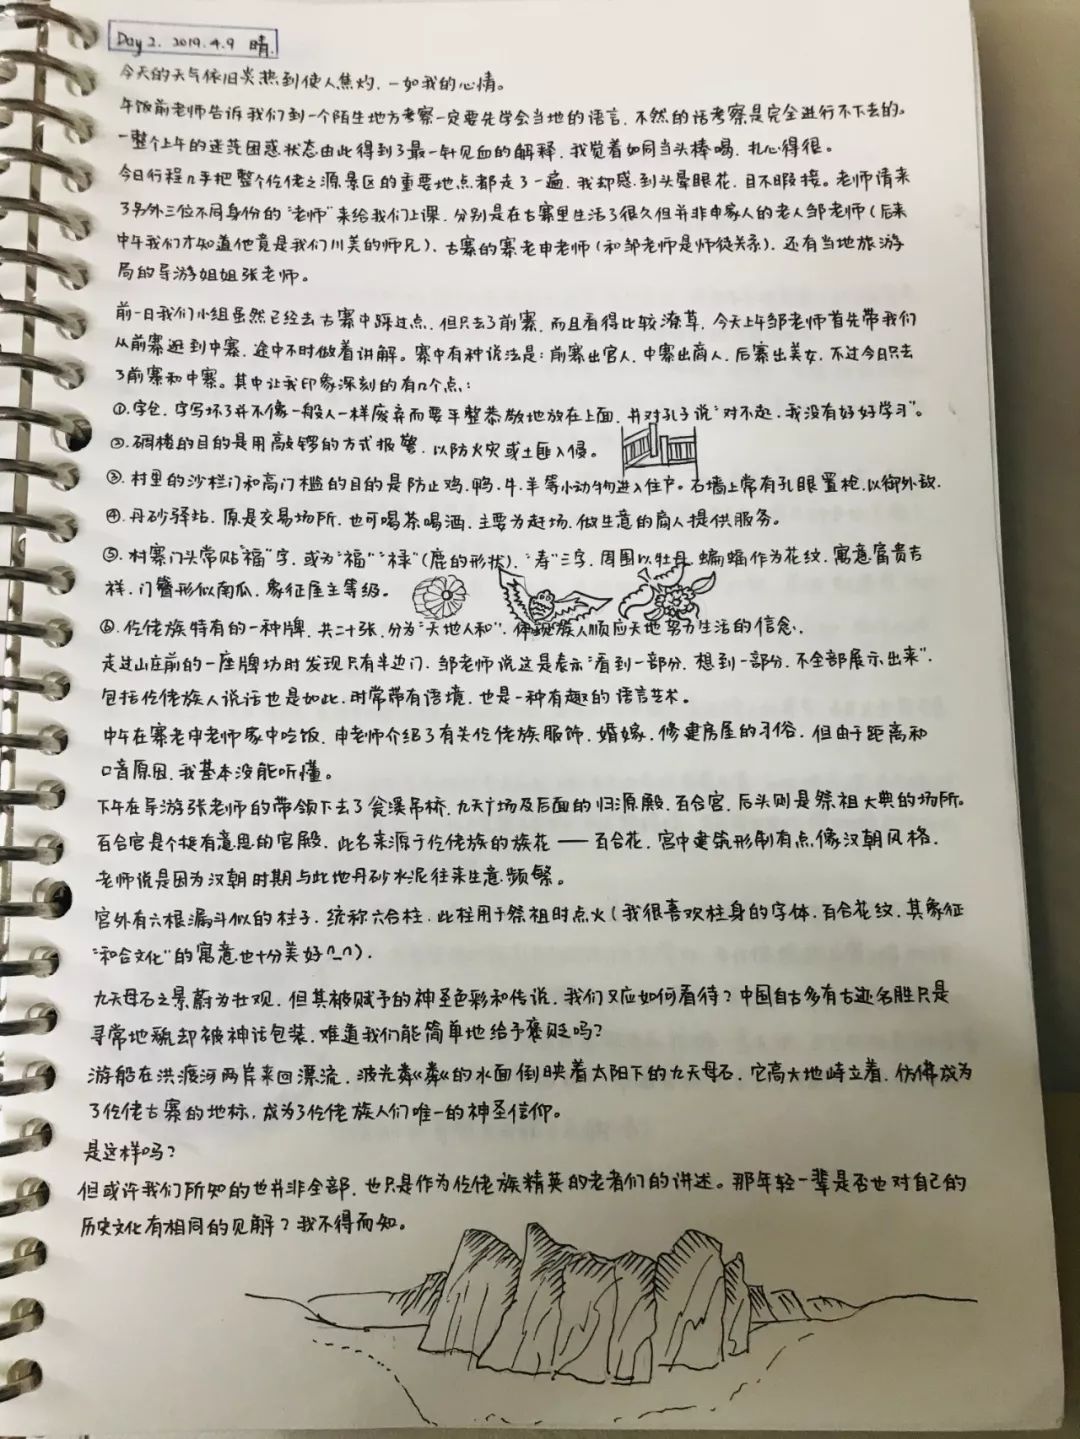 Day 2. 2019.4.9 晴.
今天的天气依旧炎热到使人焦灼，一如我的心情。
午饭前老师告诉我们到一个陌生地方考察一定要先学会当地的语言，不然的话考察是完全进行不下去的。
一整个上午的迷茫困惑状态由此得到了最一针见血的解释，我觉着如同当头棒喝，扎心得很。
今日行程几乎把整个仡佬之源景区的重要地点都走了一遍，我却感到头晕眼花，目不暇接。老师请来
了另外三位不同身份的“老师”来给我们上课，分别是在古寨里生活了很久但并非申家人的老人邹老师（后来
中午我们才知道他竟是我们川美的师兄），古寨的寨老申老师（和邹老师是师徒关系），还有当地旅游
局的导游姐姐张老师。
前一日我们小组虽然已经去古寨中踩过点，但只去了前寨，而且看得比较潦草，今天上午邹老师首先带我们
从前寨逛到中寨，途中不时做着讲解。寨中有种说法是：前寨出官人，中寨出商人，后寨出美女，不过今日只去
了前寨和中寨。其中让我印象深刻的有几个点：
①.字仓，字写坏了并不像一般人一样废弃而要平整恭敬地放在上面，并对孔子说“对不起，我没有好好学习”。
②.碉楼的目的是用敲锣的方式报警，以防火灾或土匪入侵。
③.村里的沙栏门和高门槛的目的是防止鸡、鸭、牛、羊等小动物进入住户。石墙上常有孔眼置枪，以御外敌.
④.丹砂驿站，原是交易场所，也可喝茶喝酒，主要为赶场、做生意的商人提供服务。
⑤.村寨门头常贴“福”字，或为“福”“禄”（鹿的形状），“寿”三字，周围以牡丹、蝙蝠作为花纹，寓意富贵吉
祥，门簪形似南瓜，象征屋主等级。
⑥.仡佬族特有的一种牌，共二十张，分为“天地人和”，体现族人顺应天地努力生活的信念.
走过山庄前的一座牌坊时发现只有半边门，邹老师说这是表示“看到一部分，想到一部分，不全部展示出来”，
包括仡佬族人说话也是如此，时常带有语境，也是一种有趣的语言艺术。
中午在寨老申老师家中吃饭，申老师介绍了有关仡佬族服饰、婚嫁、修建房屋的习俗，但由于距离和
口音原因，我基本没能听懂。
下午在导游张老师的带领下去了瓮溪吊桥，九天广场及后面的归源殿，百合宫，后头则是祭祖大典的场所。
百合宫是个挺有意思的宫殿，此名来源于仡佬族的族花——百合花，宫中建筑形制有点像汉朝风格，
老师说是因为汉朝时期与此地丹砂水泥往来生意频繁。
宫外有六根漏斗似的柱子，统称六合柱，此柱用于祭祖时点火（我很喜欢柱身的字体，百合花纹，其象征
“和合文化”的寓意也十分美好^_^）.
九天母石之景蔚为壮观，但其被赋予的神圣色彩和传说，我们又应如何看待？中国自古多有古迹名胜只是
寻常地貌却被神话包装，难道我们能简单地给予褒贬吗？
游船在洪渡河两岸来回漂流，波光粼粼的水面倒映着太阳下的九天母石，它高大地峙立着，仿佛成为
了仡佬古寨的地标，成为了仡佬族人们唯一的神圣信仰。
是这样吗？
但或许我们所知的也并非全部，也只是作为仡佬族精英的老者们的讲述。那年轻一辈是否也对自己的
历史文化有相同的见解？我不得而知。